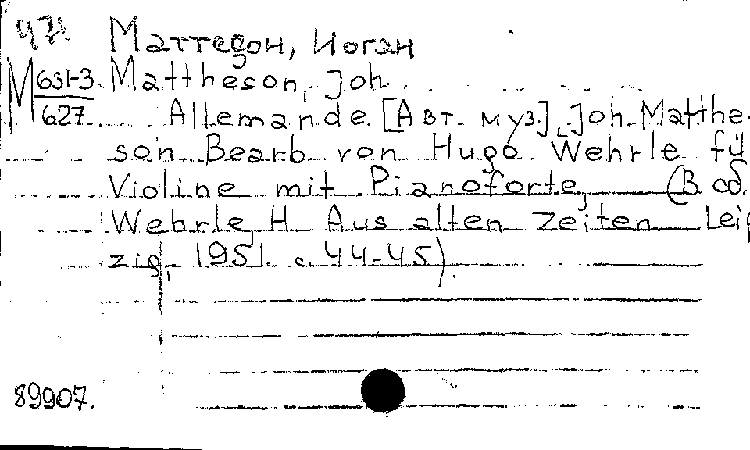 471 Маттезон, Иоган
М 631-3 Mattheson, Joh
627 Allemande. [Авт. муз.] Joh. Matthe-
son Bearb von Hugo Wehrle fü
Violine mit Pianoforte, (В сб.
Wehrle, H Aus alten Zeiten Leip
zig, 1951. с. 44-45).
89907.